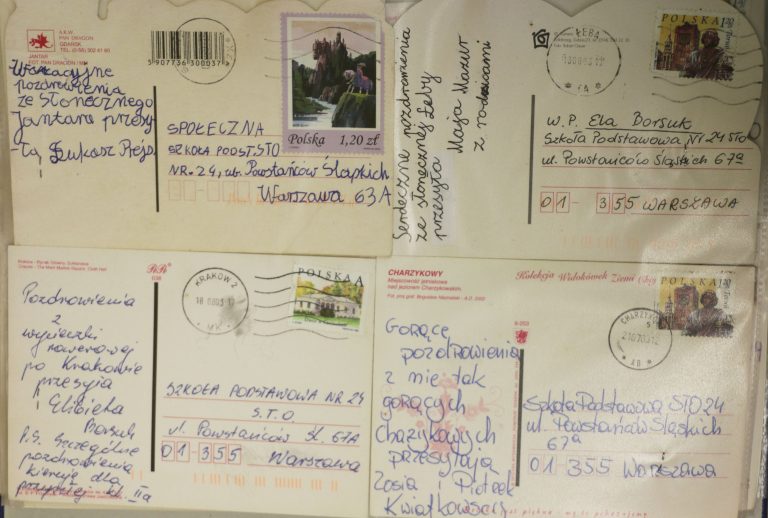 A.K.W.
PAN DRAGON
GDAŃSK
JANTAR
5907736300037
Wakacyjne
pozdrowienia
ze słonecznego
Jantara przesy-
-ła Łukasz
Polska 1,20 zł
SPOŁECZNA
SZKOŁA PODST. STO
NR. 24, ul. Powstańców Śląskich
Warszawa 63A
Serdeczne pozdrowienia
ze słonecznej Łeby
przesyła
Maja Mazur
z rodzicami
ŁEBA
POLSKA
W.P. Ela Borsuk
Szkoła Podstawowa Nr 24 STO
ul. Powstańców Śląskich 67a
01-355 WARSZAWA
Kraków - Rynek Główny, Sukiennice
Cracow - The Main Market Square, Cloth Hall
Pozdrowienia
z
wycieczki
rowerowej
po Krakowie
przesyła
Elżbieta
Borsuk
P.S. Szczególne
pozdrowienia
kieruję dla
przyszłej kl. IIa
KRAKÓW 2
POLSKA A
SZKOŁA PODSTAWOWA NR 24
S.T.O
ul. Powstańców Śl. 67A
01-355 Warszawa
CHARZYKOWY
Miejscowość gminna
nad jeziorem Charzykowskim.
Kolekcja Widokówek Ziemi
GORĄCE
POZDROWIENIA
Z NIE TAK
GORĄCYCH
CHARZYKOWYCH
PRZESYŁAJĄ
ZOSIA i Piotrek
KWIATKOWSCY
POLSKA
Szkoła Podstawowa STO 24
ul. Powstańców Śląskich
67a
01-355 WARSZAWA